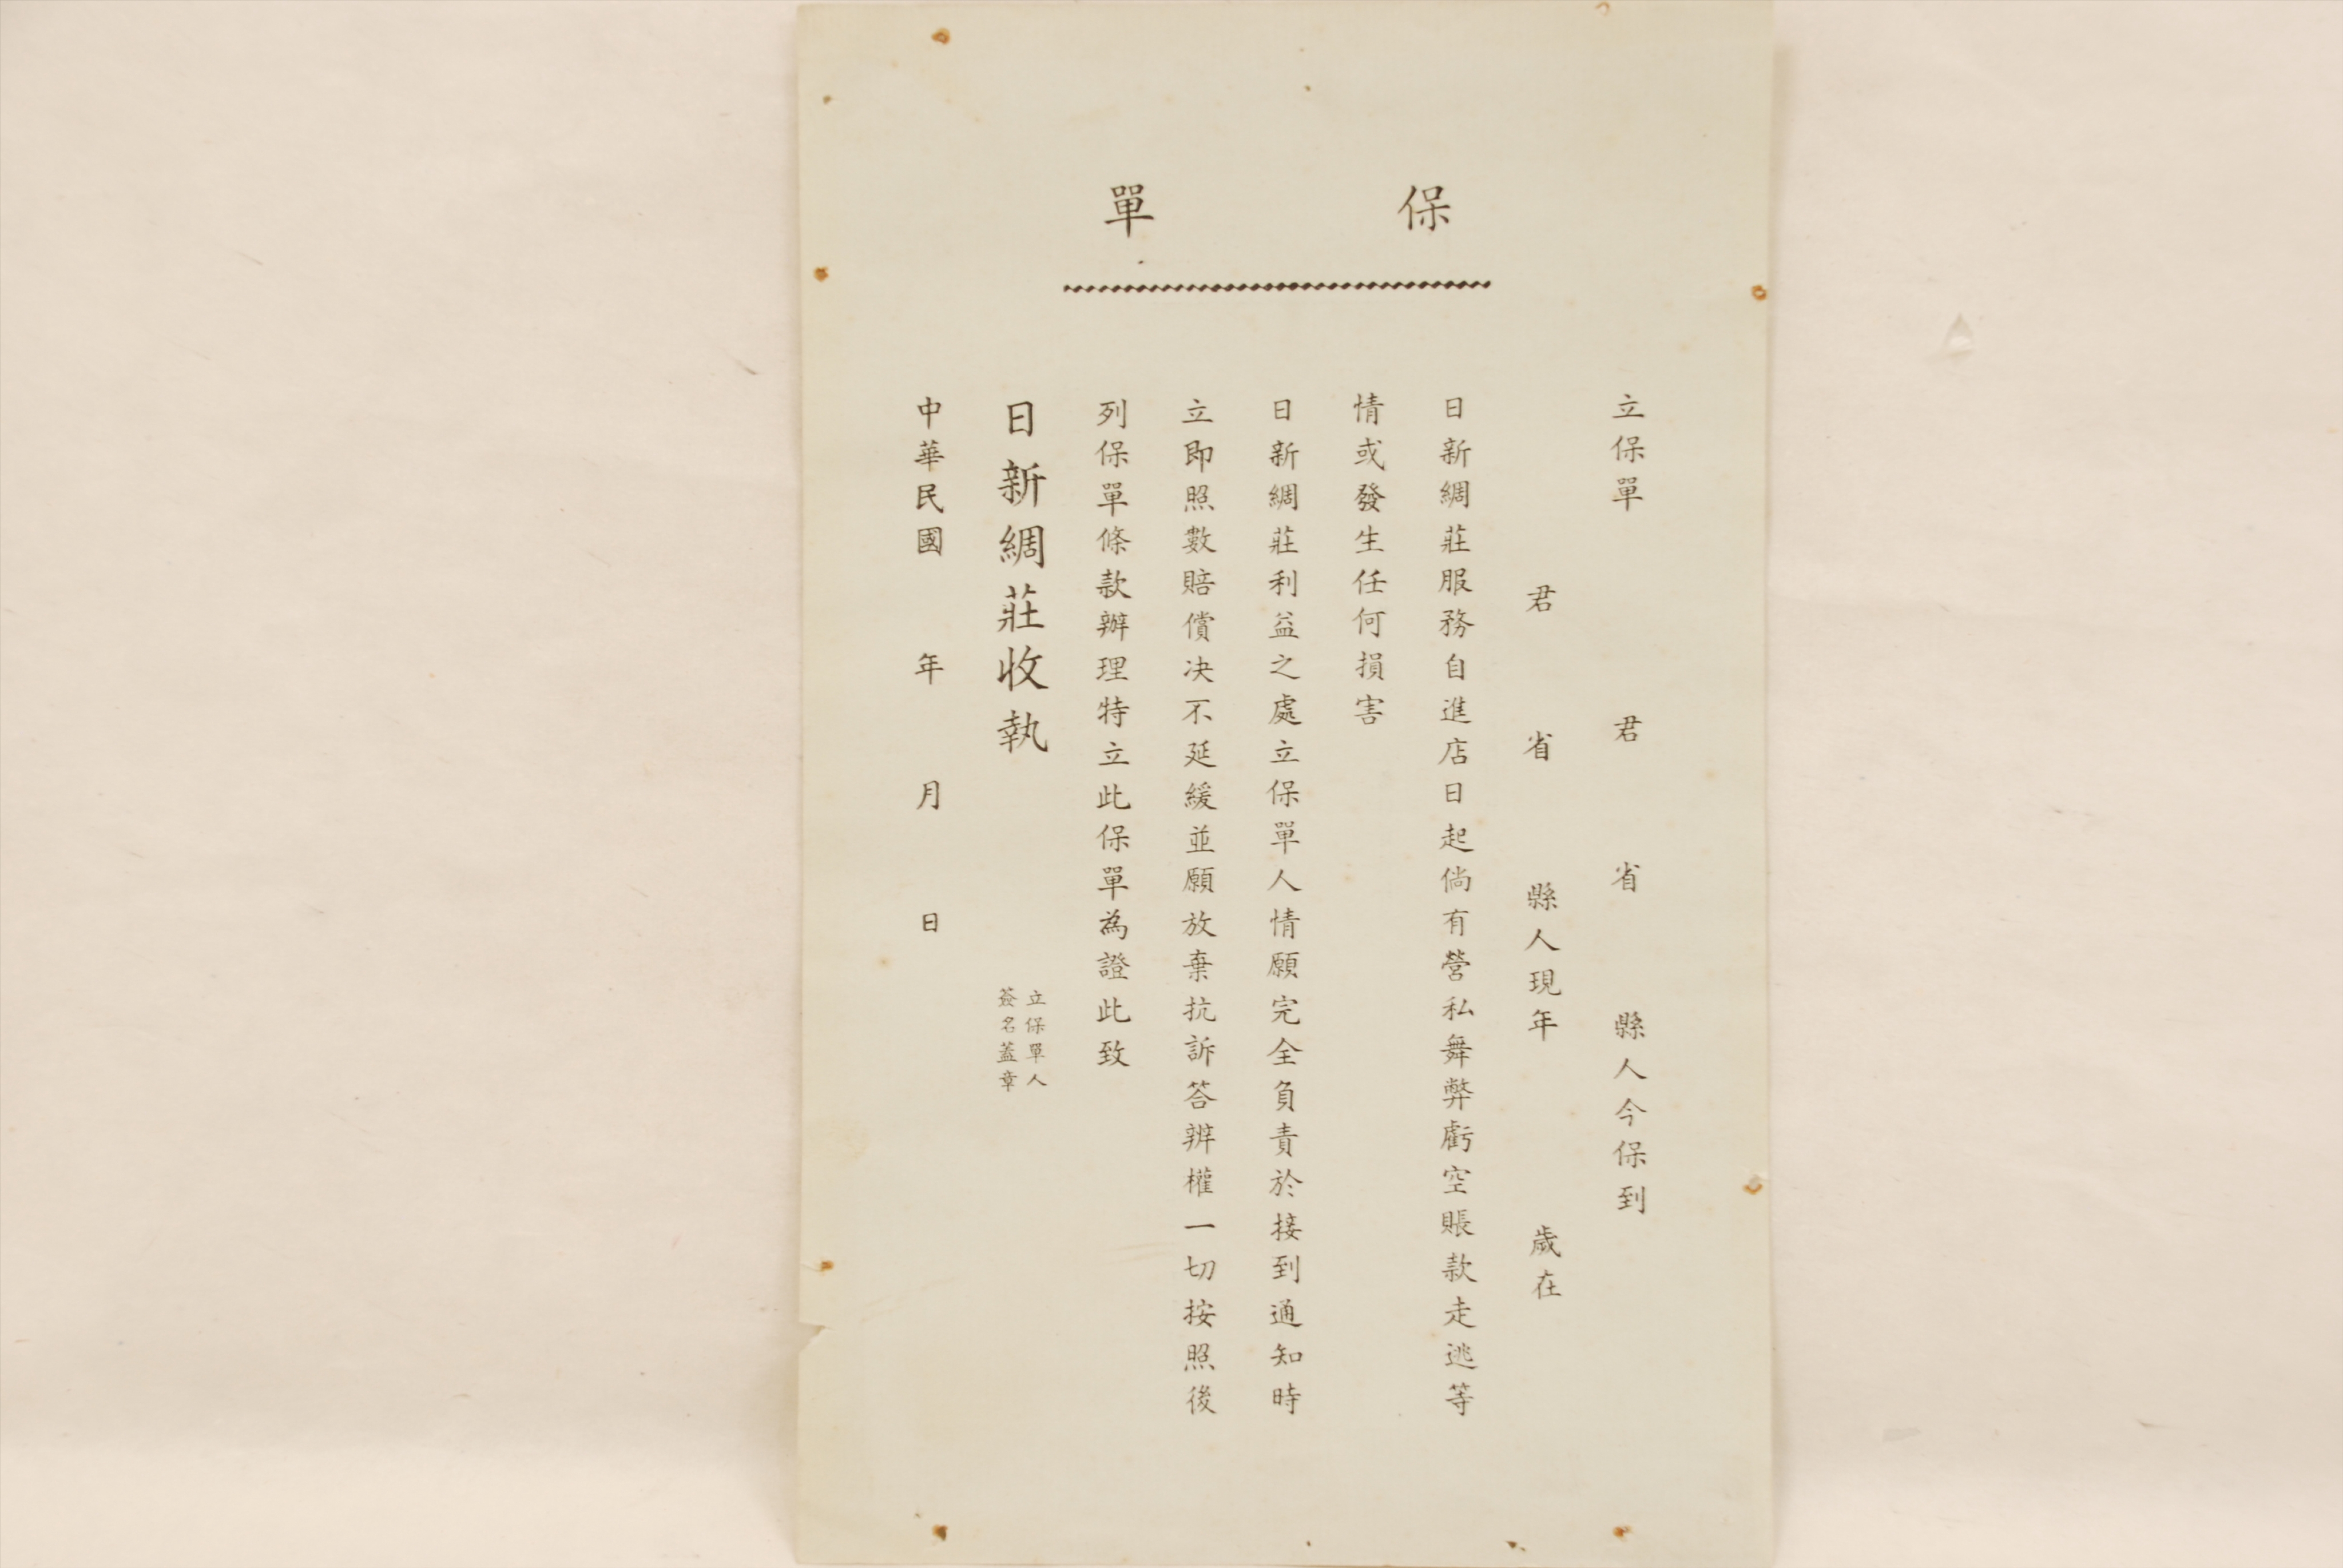 保單
立保單 君 省 縣人今保到
君 省 縣人現年 歲在
日新綢莊服務自進店日起倘有營私舞弊虧空賬款走逃等
情或發生任何損害
日新綢莊利益之處立保單人情願完全負責於接到通知時
立即照數賠償決不延緩並願放棄抗訴答辨權一切按照後
列保單條款辦理特立此保單為證此致
日新綢莊收執
立保單人
簽名蓋章
中華民國 年 月 日